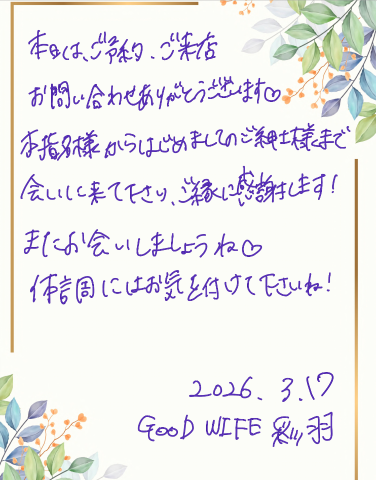 本日は、ご予約、ご来店
お問い合わせありがとうございます♡
本指名様からはじめましてのご紳士様まで
会いに来て下さり、ご縁に感謝します!
またお会いしましょうね♡
体調にはお気を付けて下さいね!
2026.3.17
GOOD WIFE 彩羽